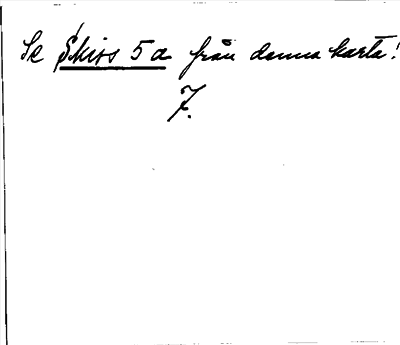 Se Skirs 5a från denna karta!
7.